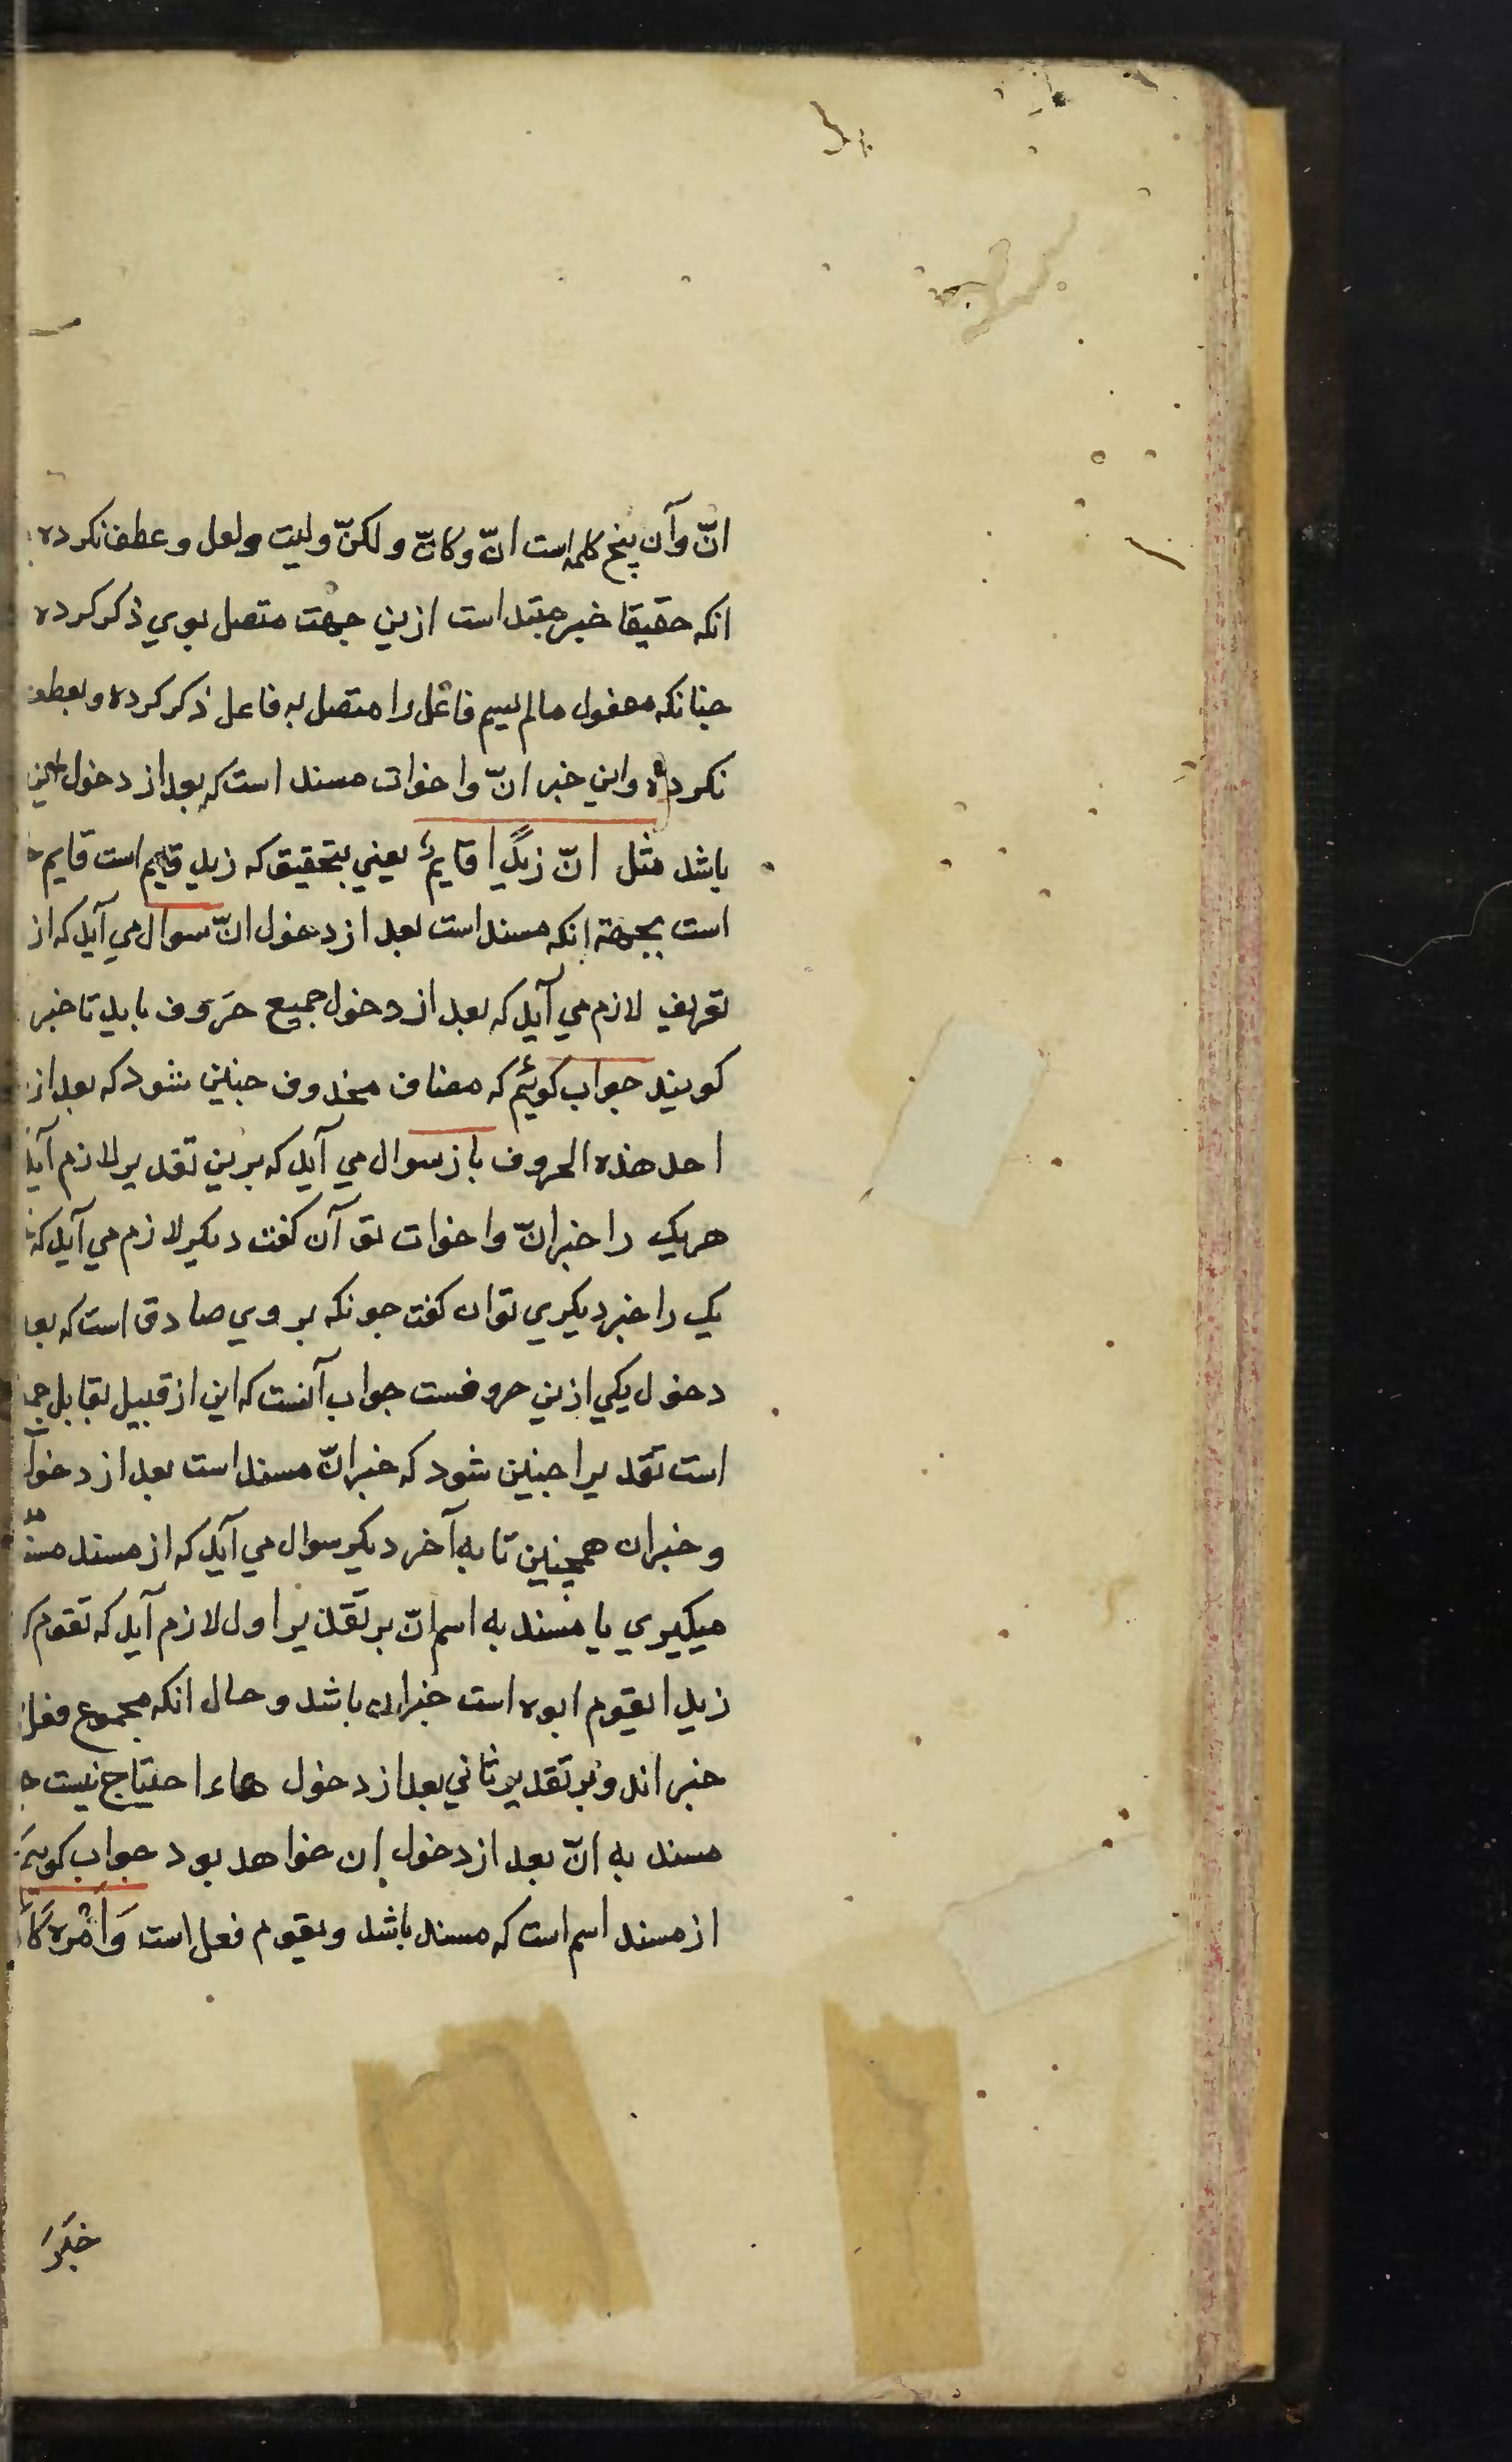 انّ وآن پنج کلمه است انّ وکانّ ولکنّ ولیت ولعل وعطف نکرده
انکه حقیقا خبر مبتداست ازین جهت متصل بوی ذکر کرده
چنانکه مفعول مالم یسم فاعل را متصل به فاعل ذکر کرده وبعطف
نکرده واین خبر انّ واخوات مسند است که بعد از دخول این
باشد مثل انّ زیدًا قایمٌ یعنی بتحقیق که زید قایم است قایم
است بجهة انکه مسند است بعد از دخول انّ سوال می آید که از
تعریف لازم می آید که بعد از دخول جمیع حروف باید تا خبر
کویند جواب کوئیم که مضاف محذوف چنین شود که بعد از
احد هذه الحروف باز سوال می آید که برین تقدیر لازم آید
هریک را خبر انّ واخوات توآن کفت دیکر لازم می آید که
یک را خبر دیکری توان کفت چونکه بروی صادق است که بعد
دخول یکی ازین حروفست جواب آنست که این از قبیل تقابل
است تقدیرا چنین شود که خبر انّ مسند است بعد از دخول
وخبر ان همچنین تا به آخر دیکر سوال می آید که از مسند مسند
میکیری یا مسند به اسم انّ بر تقدیر اول لازم آید که تقوم
زیدا یقوم ابوه است خبر ان باشد وحال انکه مجموع فعل
خبر اند وبر تقدیر ثانی بعد از دخول هاء احتیاج نیست
مسند به انّ بعد از دخول ان خواهد بود جواب کویم
از مسند اسم است که مسند باشد ویقوم فعل است وَاَمْره
خَبَرَ